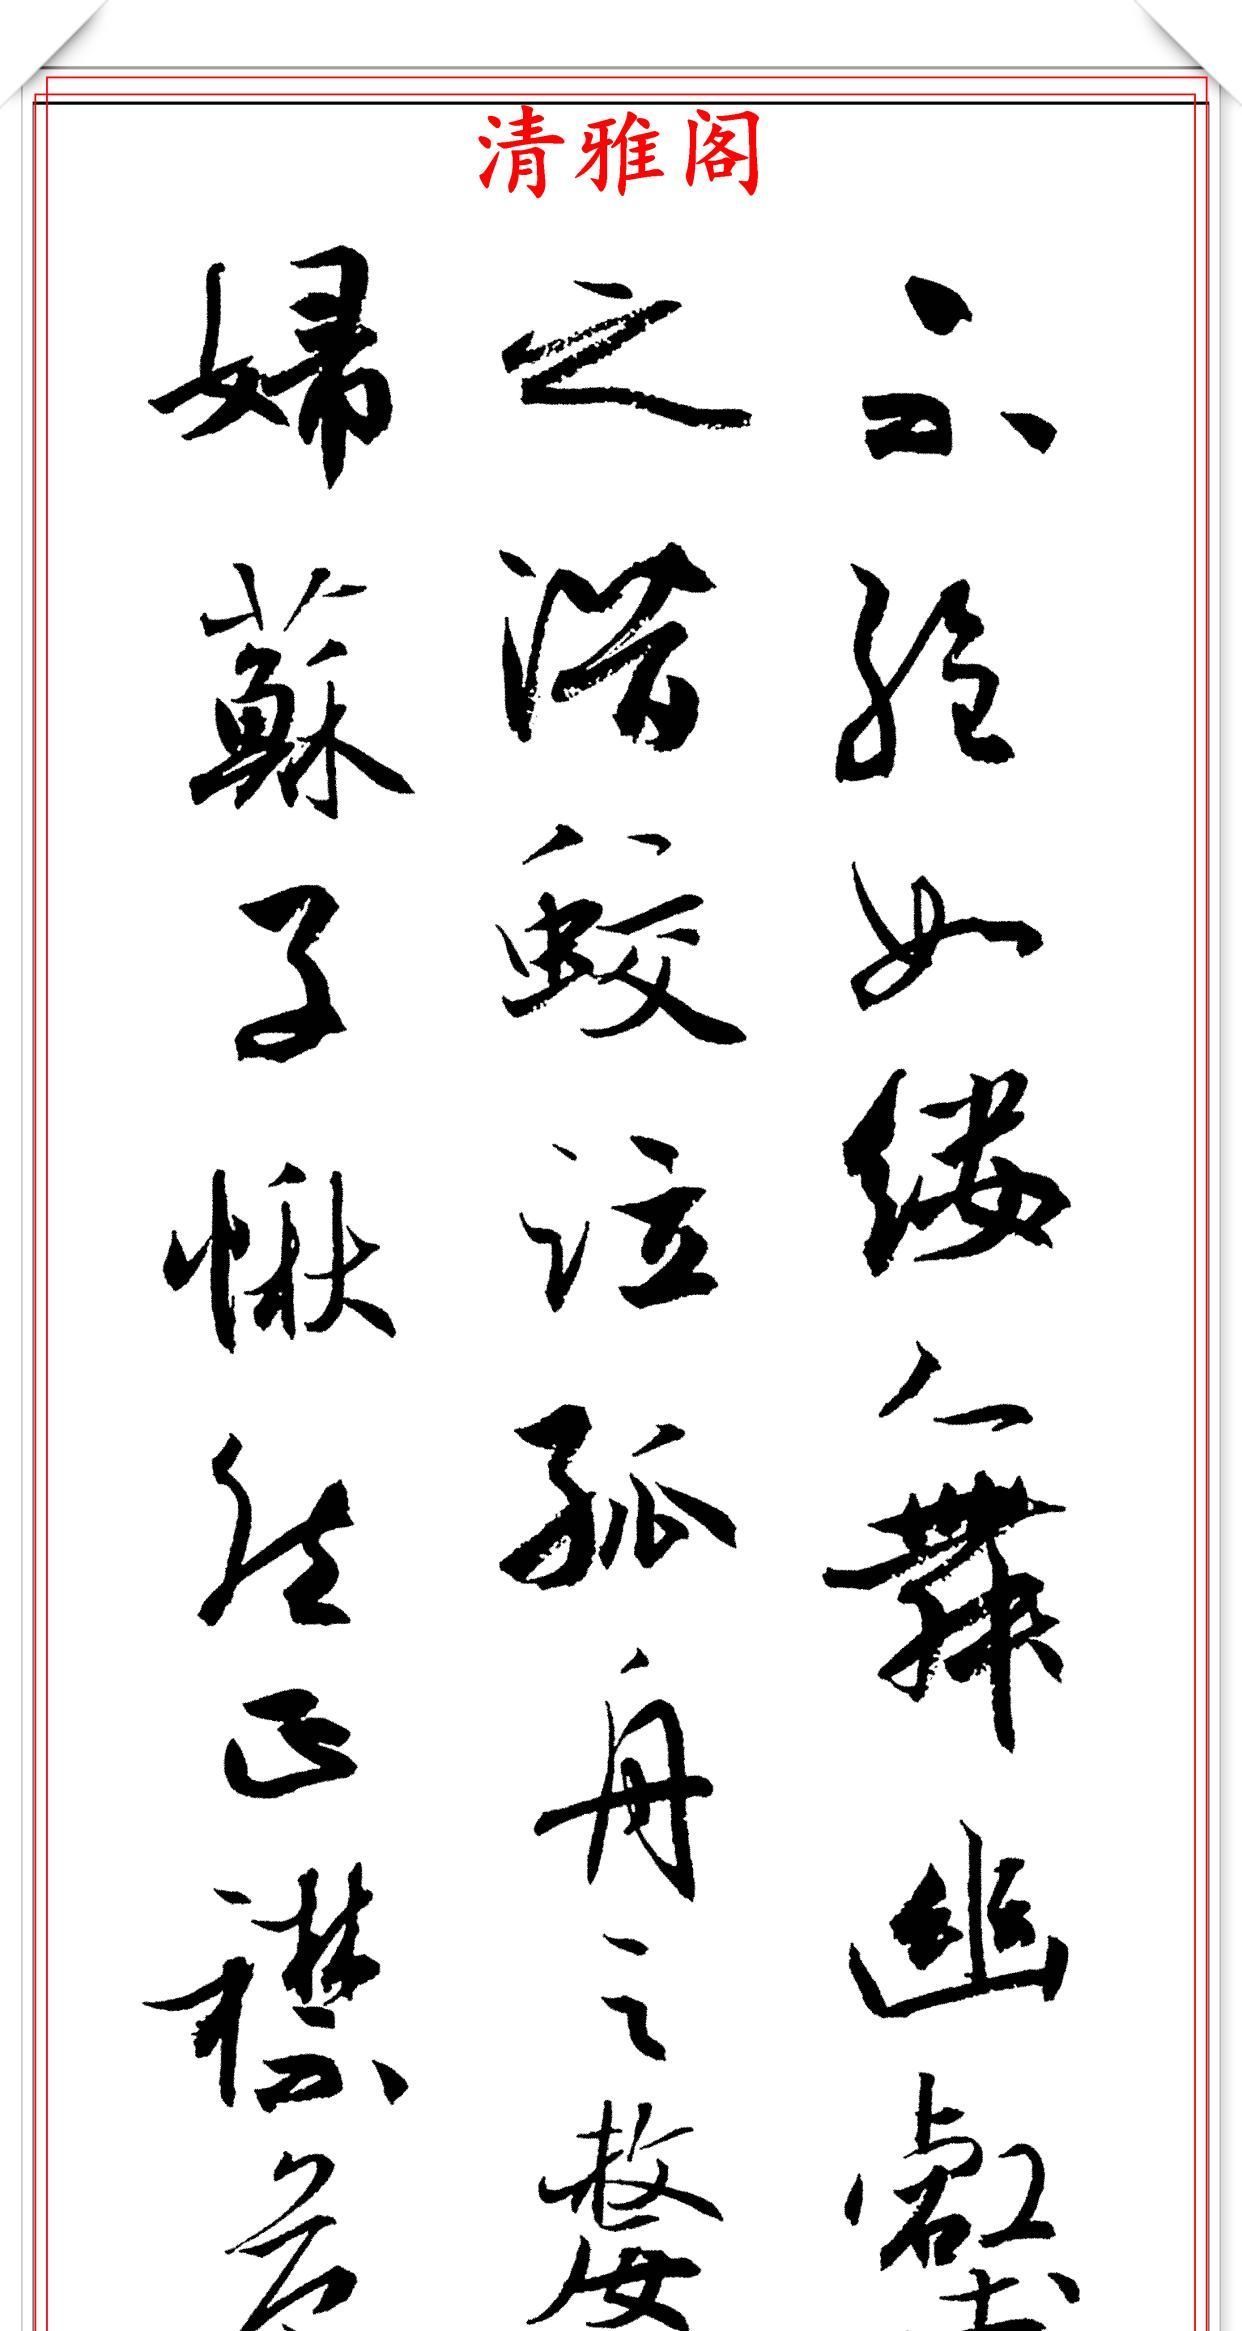 清雅阁
不绝如缕舞幽壑
之潜蛟泣孤舟之嫠
婦蘇子愀然正襟危